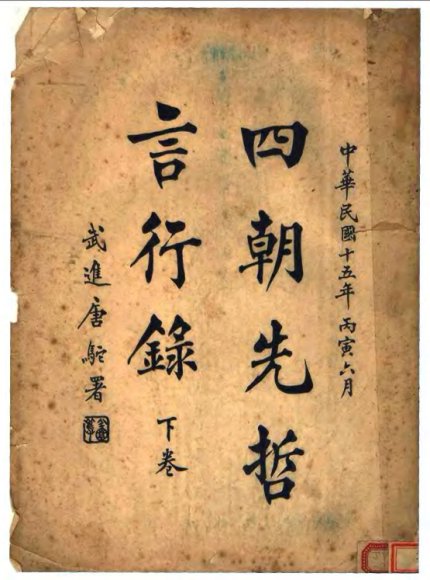 中華民國十五年丙寅六月
四朝先哲
言行錄下卷
武進唐駝署